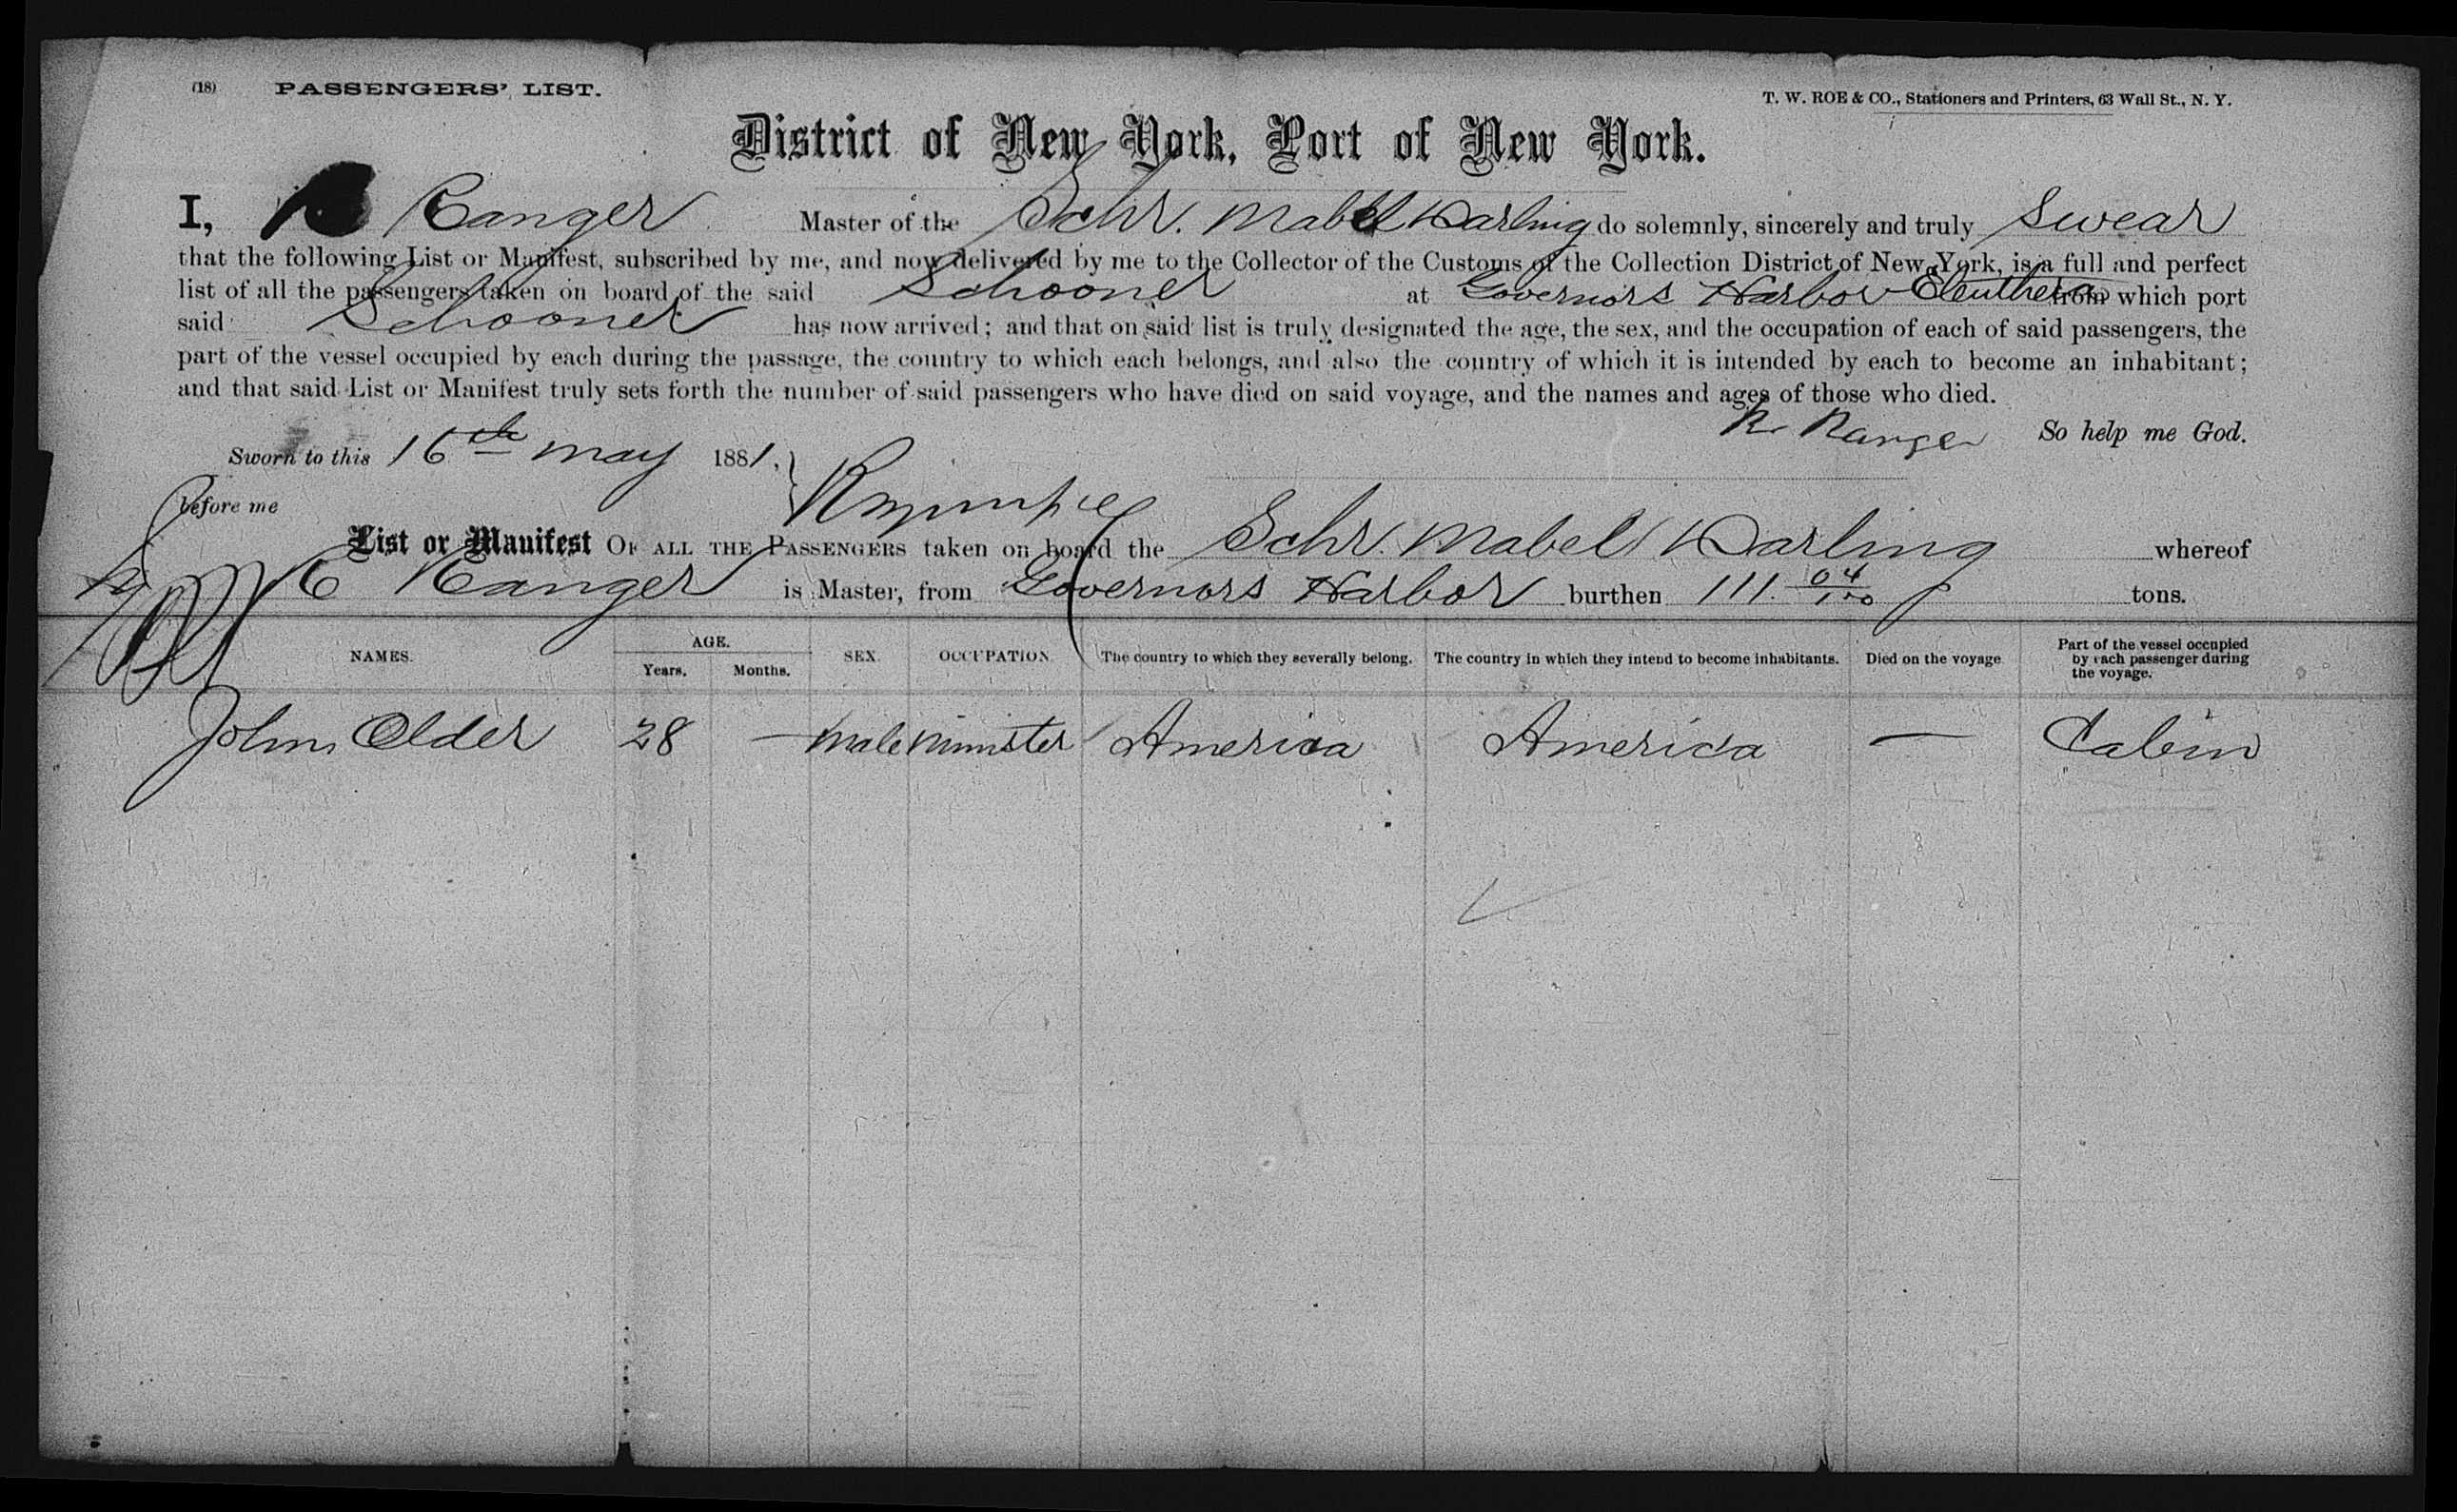 (18) PASSENGERS' LIST.
T. W. ROE & CO., Stationers and Printers, 63 Wall St., N. Y.
District of New York, Port of New York.
I, Ranger Master of the Schr. Mabel Darling do solemnly, sincerely and truly swear
that the following List or Manifest, subscribed by me, and now delivered by me to the Collector of the Customs of the Collection District of New York, is a full and perfect
list of all the passengers taken on board of the said Schooner at Governors Harbor Eleuthera from which port
said Schooner has now arrived; and that on said list is truly designated the age, the sex, and the occupation of each of said passengers, the
part of the vessel occupied by each during the passage, the country to which each belongs, and also the country of which it is intended by each to become an inhabitant;
and that said List or Manifest truly sets forth the number of said passengers who have died on said voyage, and the names and ages of those who died.
R. Ranger So help me God.
Sworn to this 16th May 1881,
Before me
List or Manifest OF ALL THE PASSENGERS taken on board the Schr. Mabel Darling whereof
Ranger is Master, from Governors Harbor burthen 111. 04/100 tons.
NAMES. AGE. Years. Months. SEX. OCCUPATION. The country to which they severally belong. The country in which they intend to become inhabitants. Died on the voyage. Part of the vessel occupied by each passenger during the voyage.
John Elder 28 — Male Minister America America — Cabin